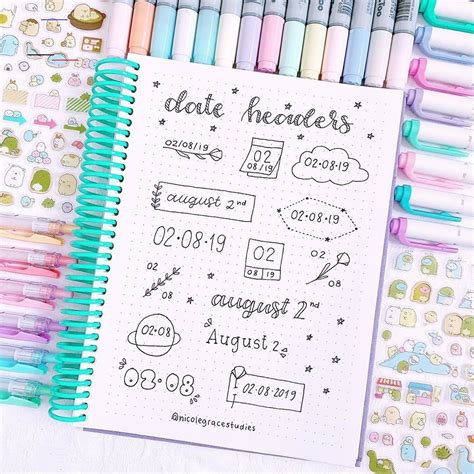 date headers
02/08/19
02
08·19
02·08·19
august 2nd
02·08·19
02·08·19
02
08/19
02
08
02
08
august 2nd
02·08
August 2
02·08
02·08·2019
@nicolegracestudies